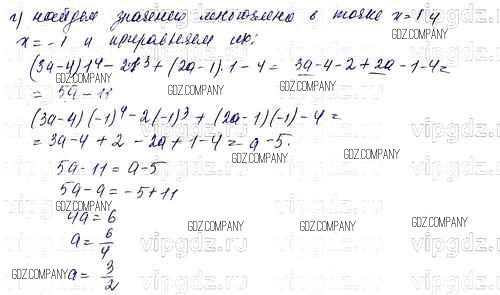 г) найдем значения многочлена в точке x=1 и
x=-1 и приравняем их:
(3a-4)1⁴-2·1³+(2a-1)·1-4= 3a-4-2+2a-1-4=
= 5a-11
(3a-4)(-1)⁴-2(-1)³+(2a-1)(-1)-4=
=3a-4+2-2a+1-4=a-5.
5a-11=a-5
5a-a=-5+11
4a=6
a=6/4
a=3/2
GDZ.COMPANY
vipgdz.ru